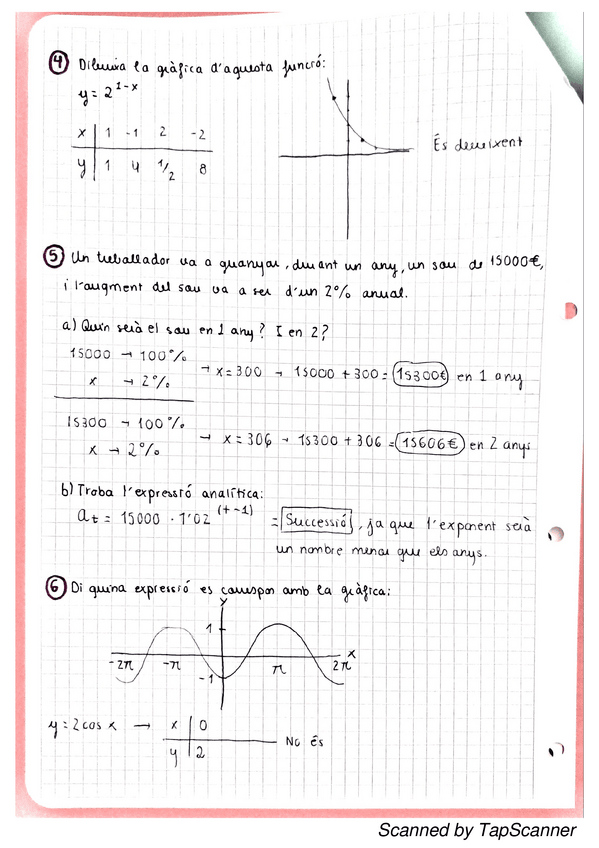 4 Dibuixa la gràfica d'aquesta funció:
y = 2^(1-x)
x | 1 -1 2 -2
y | 1 4 1/2 8
És decreixent
5 Un treballador va a guanyar, durant un any, un sou de 15000€,
i l'augment del sou va a ser d'un 2% anual.
a) Quin serà el sou en 1 any? I en 2?
15000 → 100%
x → 2%
→ x = 300 → 15000 + 300 = 15300€ en 1 any
15300 → 100%
x → 2%
→ x = 306 → 15300 + 306 = 15606€ en 2 anys
b) Troba l'expressió analítica:
at = 15000 · 1'02^(t-1) = Successió, ja que l'exponent serà
un nombre menor que els anys.
6 Di quina expressió es correspon amb la gràfica:
y
1
-2π -π π 2π x
-1
y = 2 cos x → x | 0
y | 2
No és
Scanned by TapScanner